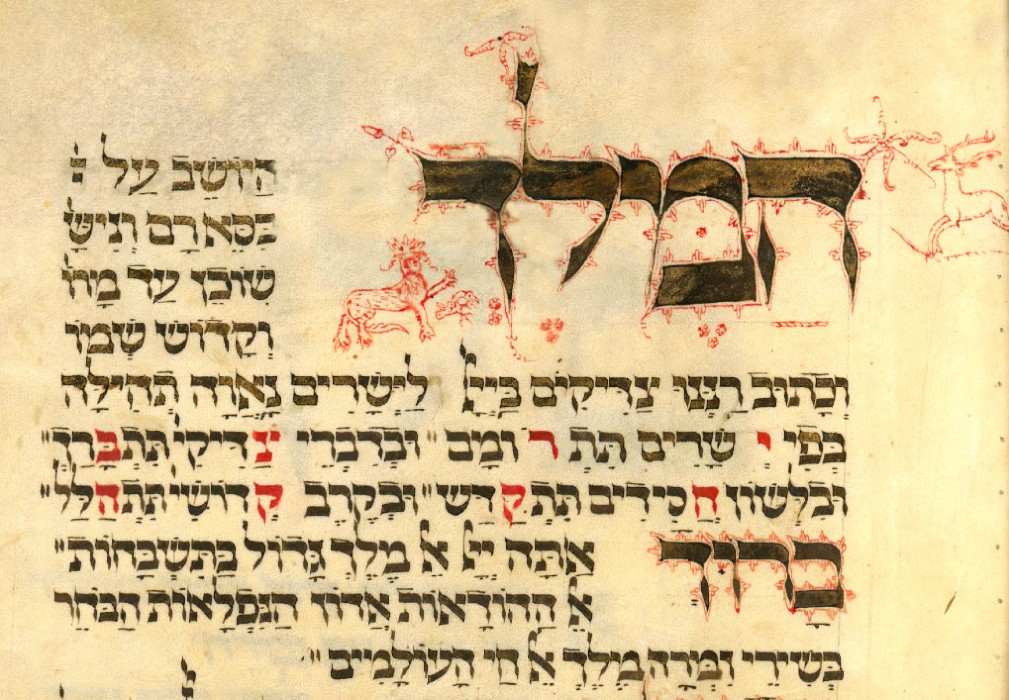 המלך
היושב על
כסא רם וניש
שוכן עד מרו
וקדוש שמו
וכתוב רננו צדיקים בייי לישרים נאוה תהילה
בפי ישרים תתרומם״ ובדברי צדיקי תתברך״
ובלשון חסידים תתקדש״ ובקרב קדושי תתהלל״
ברוך אתה ייי ﭏ מלך גדול בתשבחות״
ﭏ ההודאות אדון הנפלאות הבחר
בשירי זמרה מלך ﭏ חי העולמים״